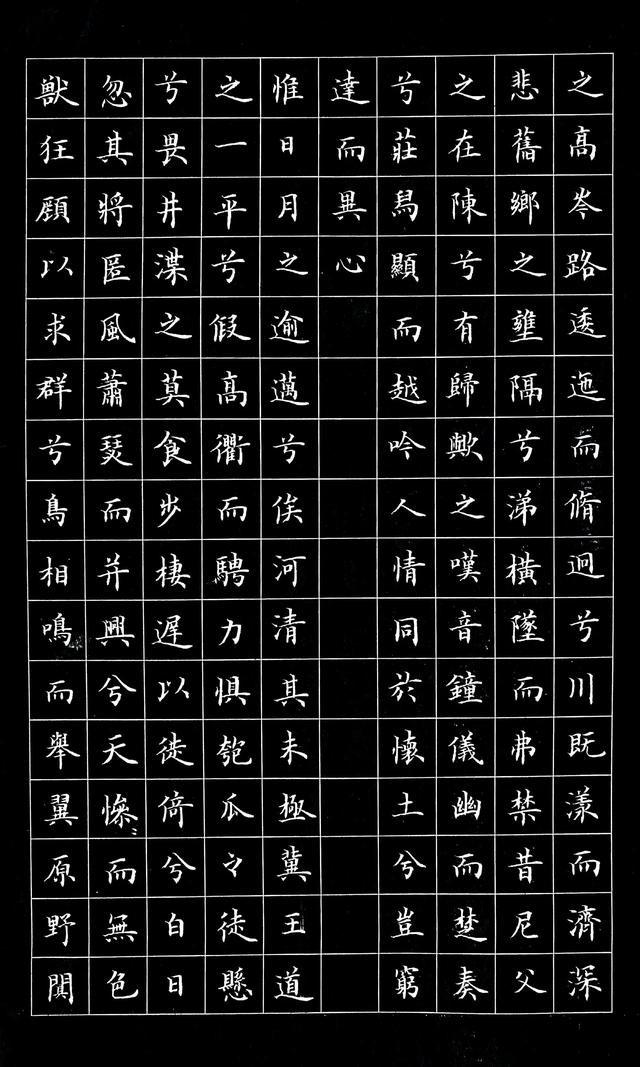 之高岑路逶迤而脩迥兮川既漾而濟深
悲舊鄉之壅隔兮涕橫墜而弗禁昔尼父
之在陳兮有歸歟之嘆音鐘儀幽而楚奏
兮莊舄顯而越吟人情同於懷土兮豈窮
達而異心
惟日月之逾邁兮俟河清其未極冀王道
之一平兮假高衢而騁力懼匏瓜之徒懸
兮畏井渫之莫食步棲遲以徙倚兮白日
忽其將匿風蕭瑟而并興兮天慘々而無色
獸狂顧以求群兮鳥相鳴而舉翼原野闃